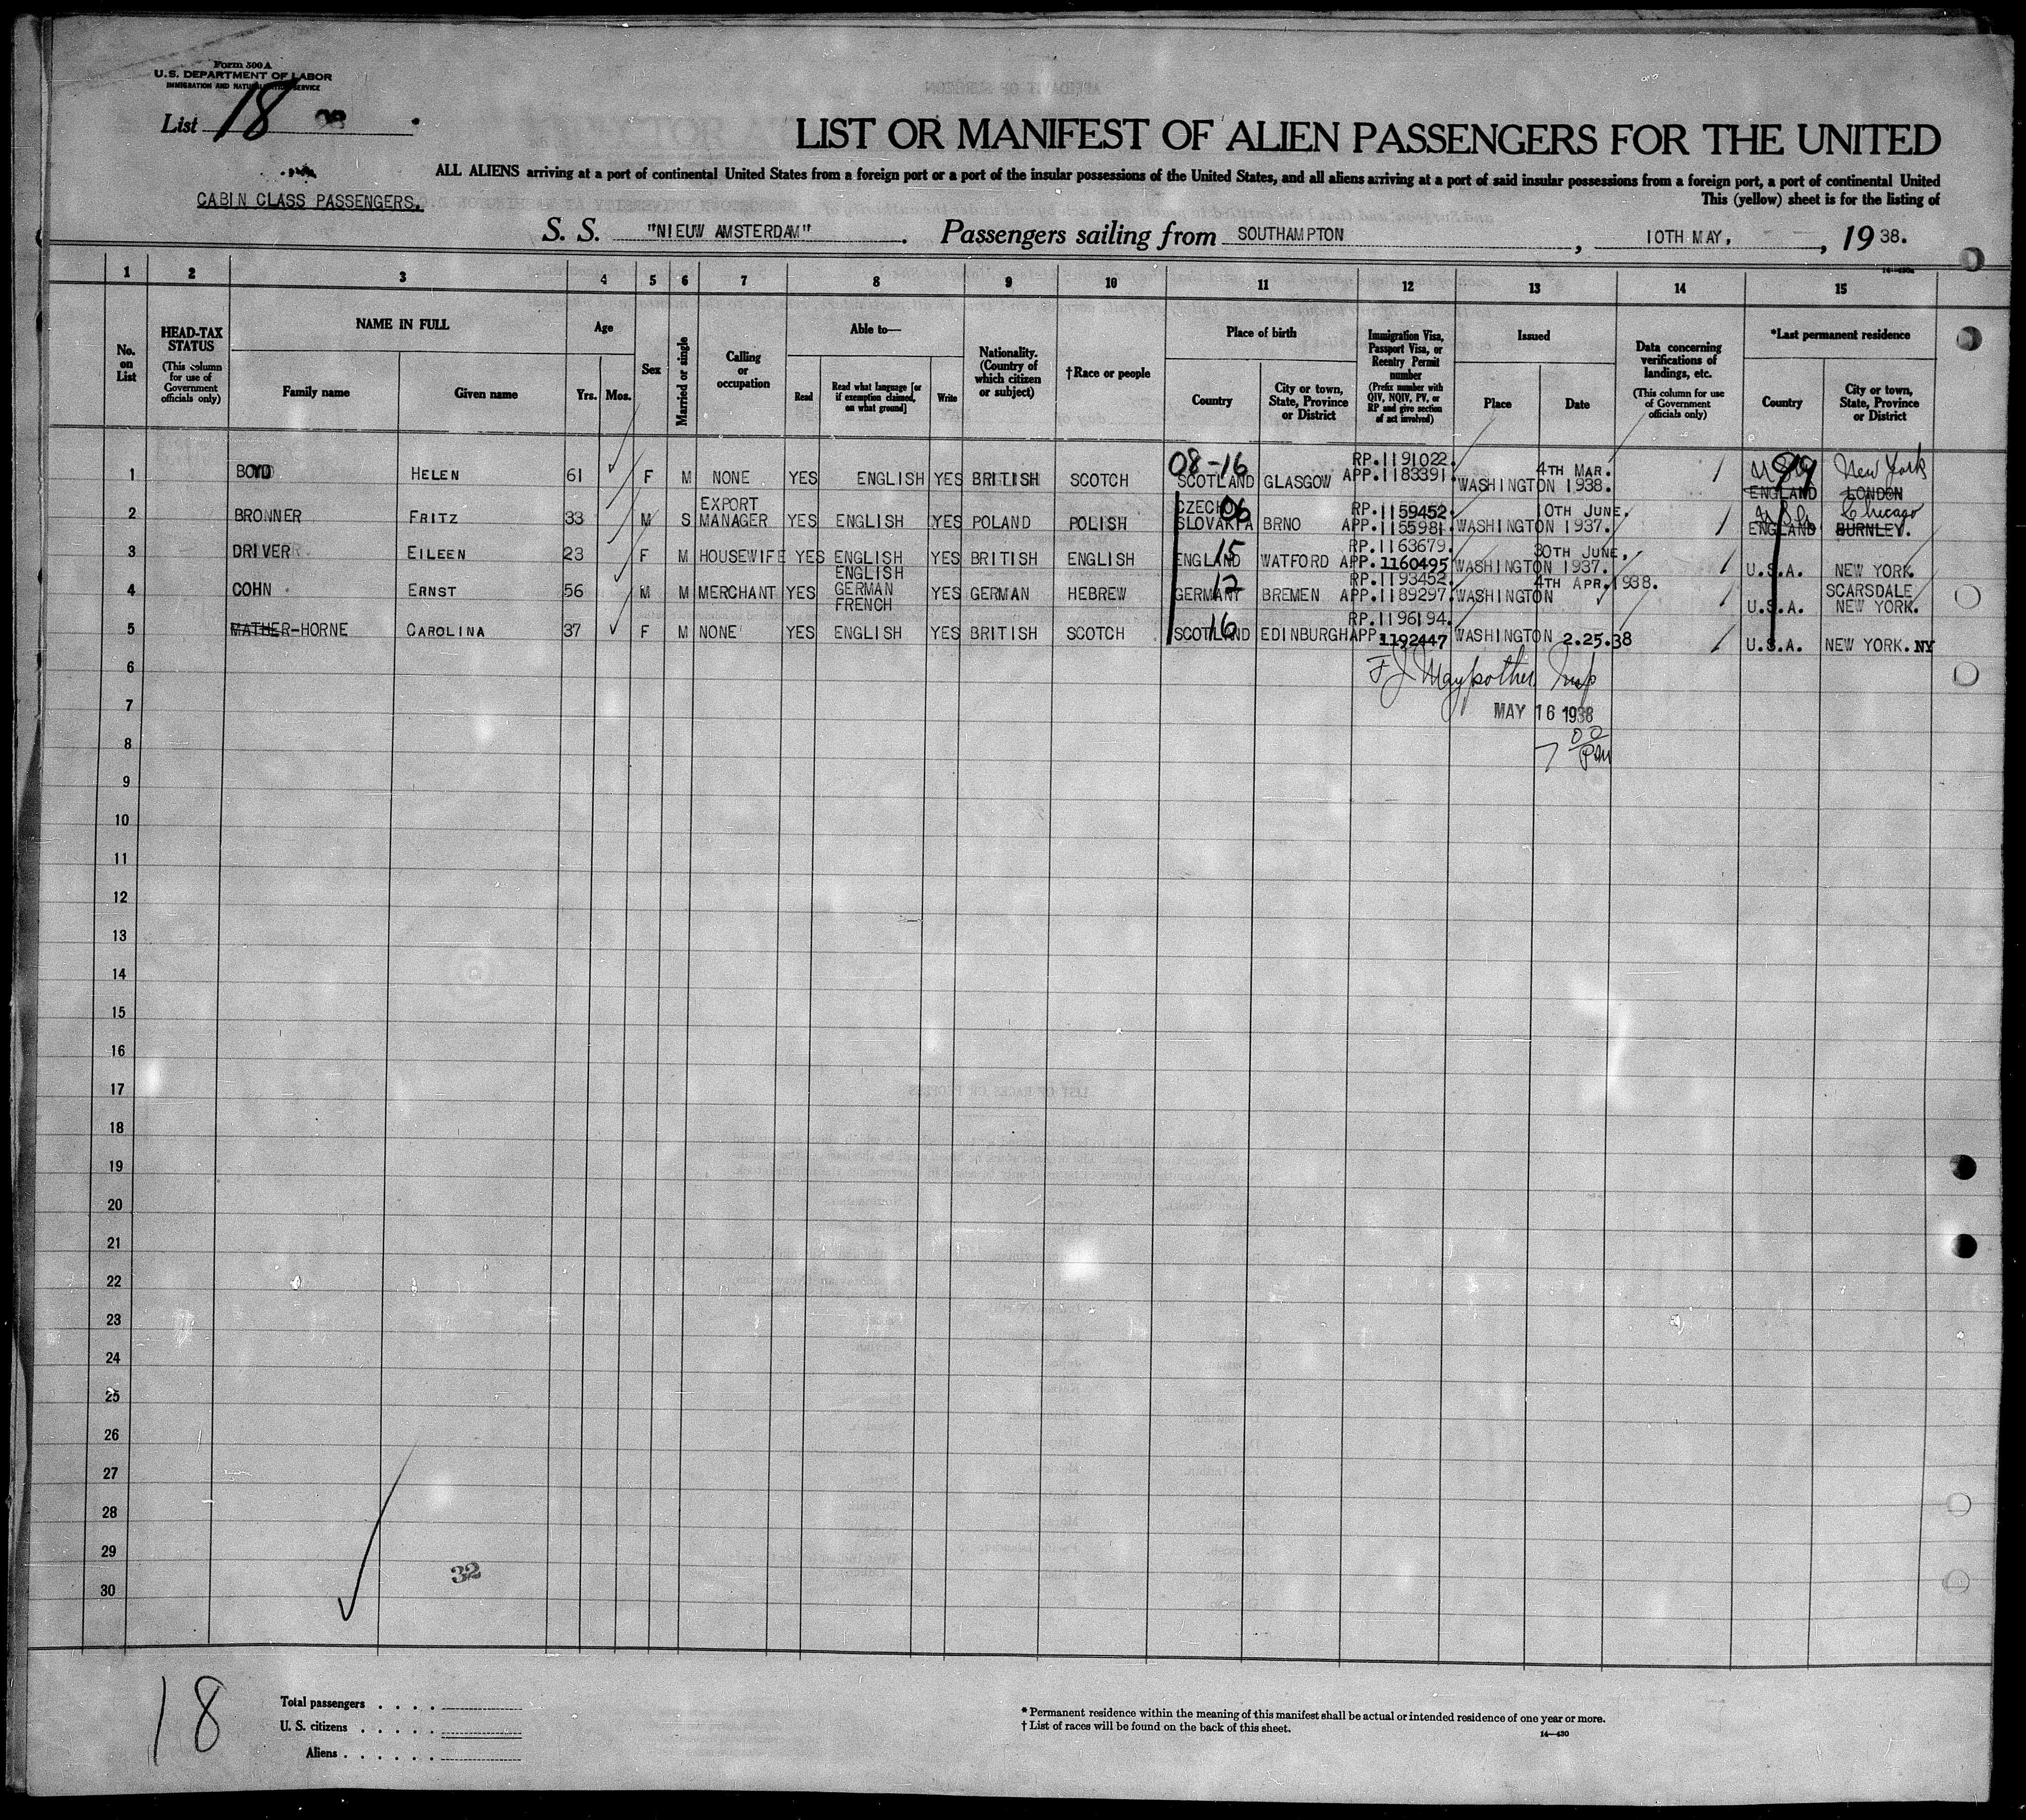 Form 500A
U.S. DEPARTMENT OF LABOR
IMMIGRATION AND NATURALIZATION SERVICE
List 18
LIST OR MANIFEST OF ALIEN PASSENGERS FOR THE UNITED
ALL ALIENS arriving at a port of continental United States from a foreign port or a port of the insular possessions of the United States, and all aliens arriving at a port of said insular possessions from a foreign port, a port of continental United
CABIN CLASS PASSENGERS.
This (yellow) sheet is for the listing of
S. S. "NIEUW AMSTERDAM". Passengers sailing from SOUTHAMPTON, 10TH MAY, 1938.
1 2 3 4 5 6 7 8 9 10 11 12 13 14 15
No. on List
HEAD-TAX STATUS
(This column for use of Government officials only)
NAME IN FULL
Family name
Given name
Age
Yrs. Mos.
Sex
Married or single
Calling or occupation
Able to—
Read
Read what language [or if exemption claimed, on what ground]
Write
Nationality. (Country of which citizen or subject)
†Race or people
Place of birth
Country
City or town, State, Province or District
Immigration Visa, Passport Visa, or Reentry Permit number
(Prefix number with QIV, NQIV, PV, or RP and give section of act involved)
Issued
Place
Date
Data concerning verifications of landings, etc.
(This column for use of Government officials only)
*Last permanent residence
Country
City or town, State, Province or District
1 BOYD HELEN 61 F M NONE YES ENGLISH YES BRITISH SCOTCH 08-16 SCOTLAND GLASGOW RP.1191022. APP.1183391. WASHINGTON 4TH MAR. 1938. USA 99 New York ENGLAND LONDON
2 BRONNER FRITZ 33 M S EXPORT MANAGER YES ENGLISH YES POLAND POLISH CZECH SLOVAKIA 06 BRNO RP.1159452. APP.1155981. WASHINGTON 10TH JUNE, 1937. USA Chicago ENGLAND BURNLEY.
3 DRIVER EILEEN 23 F M HOUSEWIFE YES ENGLISH YES BRITISH ENGLISH ENGLAND 15 WATFORD RP.1163679. APP.1160495 WASHINGTON 30TH JUNE, 1937. U.S.A. NEW YORK.
4 COHN ERNST 56 M M MERCHANT YES ENGLISH GERMAN FRENCH YES GERMAN HEBREW GERMANY 12 BREMEN RP.1193452. APP.1189297. WASHINGTON 4TH APR.1938. U.S.A. SCARSDALE NEW YORK.
5 MATHER-HORNE CAROLINA 37 F M NONE YES ENGLISH YES BRITISH SCOTCH SCOTLAND 16 EDINBURGH RP.1196194. APP.1192447 WASHINGTON 2.25.38 U.S.A. NEW YORK. NY
6
Insp
7
MAY 16 1938
8
7 00 PM
9
10
11
12
13
14
15
16
17
18
19
20
21
22
23
24
25
26
27
28
29
32
30
18
Total passengers . . . .
U. S. citizens . . . . .
Aliens . . . . . .
* Permanent residence within the meaning of this manifest shall be actual or intended residence of one year or more.
† List of races will be found on the back of this sheet.
14—430